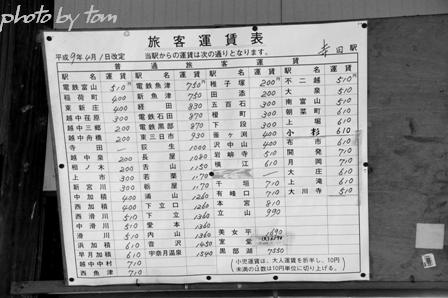 photo by tom
旅客運賃表
平成9年4月1日改定 当駅からの運賃は次の通りとなります。 寺田 駅
普通旅客
駅名 運賃 駅名 運賃 駅名 運賃 駅名 運賃
電鉄富山 510円 電鉄魚津 750円 稚子塚 200円 不二越 510円
稲荷町 400 新魚津 750 田添 200 大泉 510
東新庄 400 経田 830 五百石 300 南富山 510
越中荏原 300 電鉄石田 870 榎町 300 朝菜町 610
越中三郷 200 電鉄黒部 870 下段 300 上堀 610
越中舟橋 200 東三日市 930 釜ヶ淵 400 小杉 610
寺田 ― 荻生 1000 沢中山 400 布市 610
越中泉 200 長屋 1080 岩峅寺 510 開発 710
相ノ木 200 舌山 1150 横江 610 月岡 710
上市 300 若栗 1170 大庄 610
新宮川 300 栃屋 1170 千垣 710 上滝 610
中加積 400 浦山 1260 有峰口 710 大川寺 510
西加積 400 下立口 1260 本宮 810
西滑川 510 下立 1360 立山 990
中滑川 510 愛本 1360
滑川 510 内山 1360 美女平 1690
浜加積 610 音沢 1450 室堂
早月加積 610 宇奈月温泉 1540 黒部湖 7550
越中中村 710
西魚津 710
小児運賃は、大人運賃を折半し、10円
未満の端数は10円単位に切り上げる。